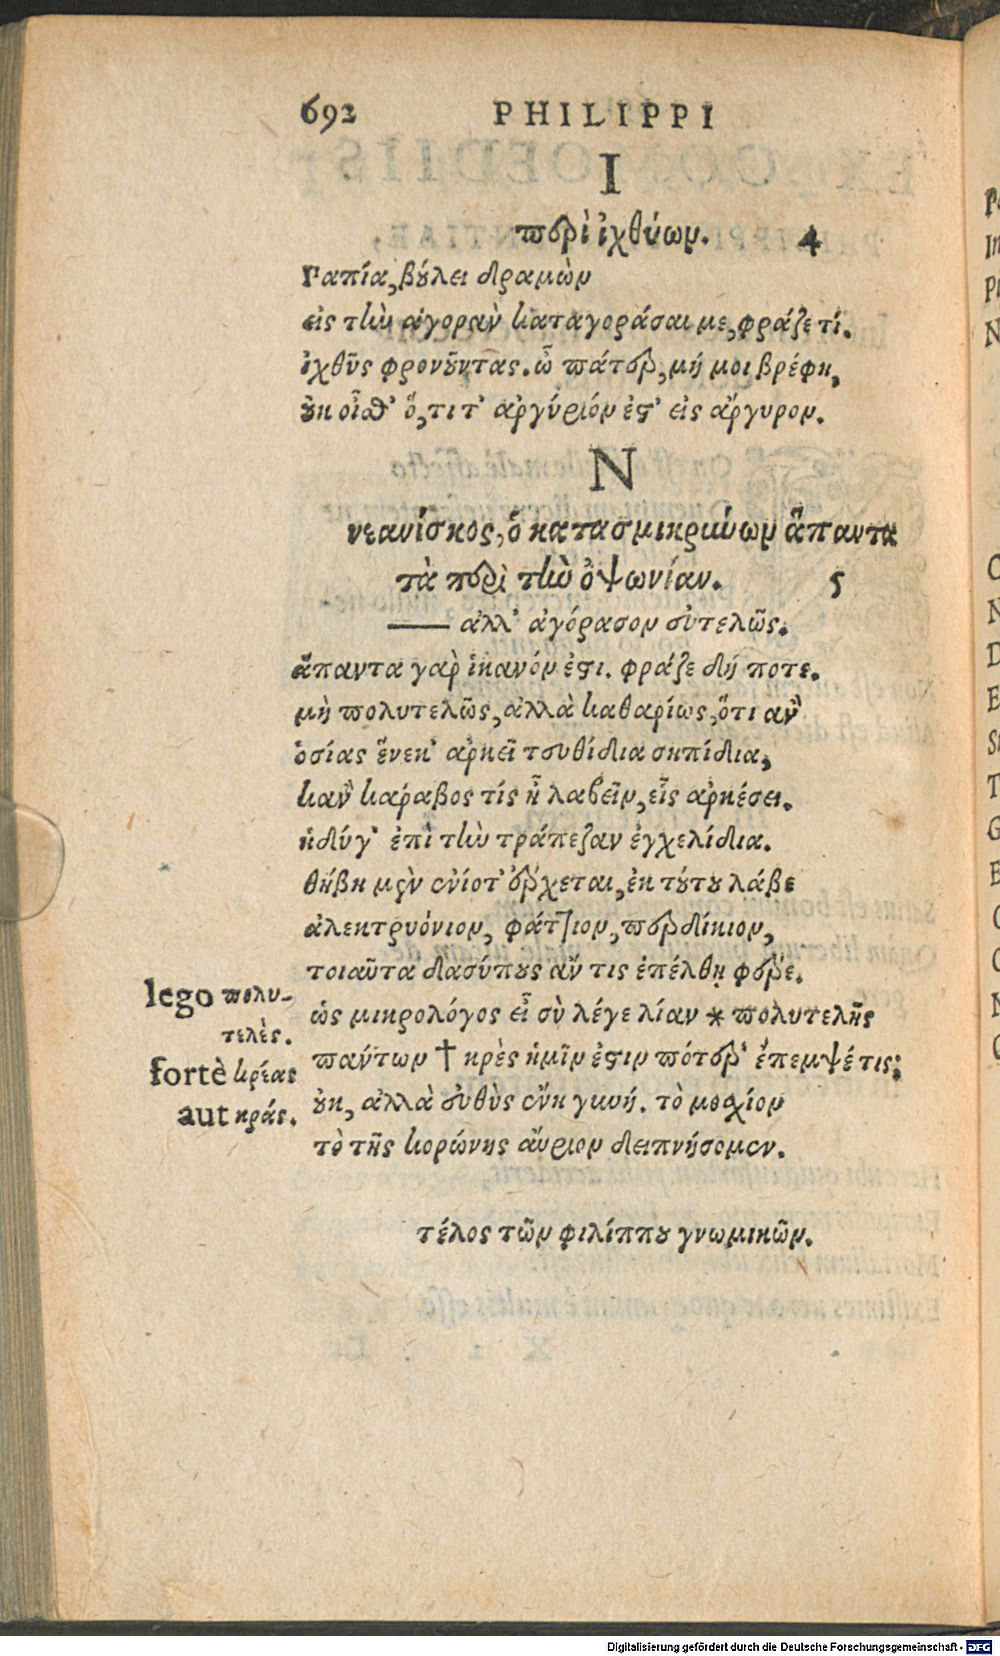 692 PHILIPPI
I
περὶ ἰχθύων. 4
Γαπία, βούλει δραμὼν
εἰς τὴν ἀγορὰν καταγοράσαι με, φράζε τί.
ἰχθῦς φρονοῦντας. ὦ πάτερ, μή μοι βρέφη,
οὐκ οἶσθ' ὅ,τι τ' ἀργύριόν ἐστ' εἰς ἄργυρον.
N
νεανίσκος, ὁ κατασμικρύνων ἅπαντα
τὰ περὶ τὴν ὀψωνίαν. 5
—— ἀλλ' ἀγόρασον εὐτελῶς.
ἅπαντα γὰρ ἱκανόν ἐστι. φράζε δή ποτε.
μὴ πολυτελῶς, ἀλλὰ καθαρίως, ὅτι ἂν ᾖ
ὁσίας ἕνεκ' ἀρκεῖ τευθίδια σηπίδια,
κἂν κάραβος τίς ᾖ λαβεῖν, εἷς ἀρκέσει.
ἡδύ γ' ἐπὶ τὴν τράπεζαν ἐγχελίδια.
θήβη μὲν ἐνίοτ' ἔρχεται, ἐκ τούτου λάβε
ἀλεκτρυόνιον, φάττιον, περδίκιον,
τοιαῦτα δασύπους ἄν τις ἐπέλθῃ φέρε.
ὡς μικρολόγος εἶ σὺ λέγε λίαν * πολυτελῆς
πάντων † κρὲς ἡμῖν ἐστιν πότερ' ἔπεμψέ τις;
οὐκ, ἀλλὰ εὐθὺς ἓν γυνή. τὸ μοσχίον
τὸ τῆς κορώνης αὔριον δειπνήσομεν.
τέλος τῶν φιλίππου γνωμικῶν.
lego πολυ-
τελὲς.
fortè κρέας
aut κράς.
Digitalisierung gefördert durch die Deutsche Forschungsgemeinschaft - DFG